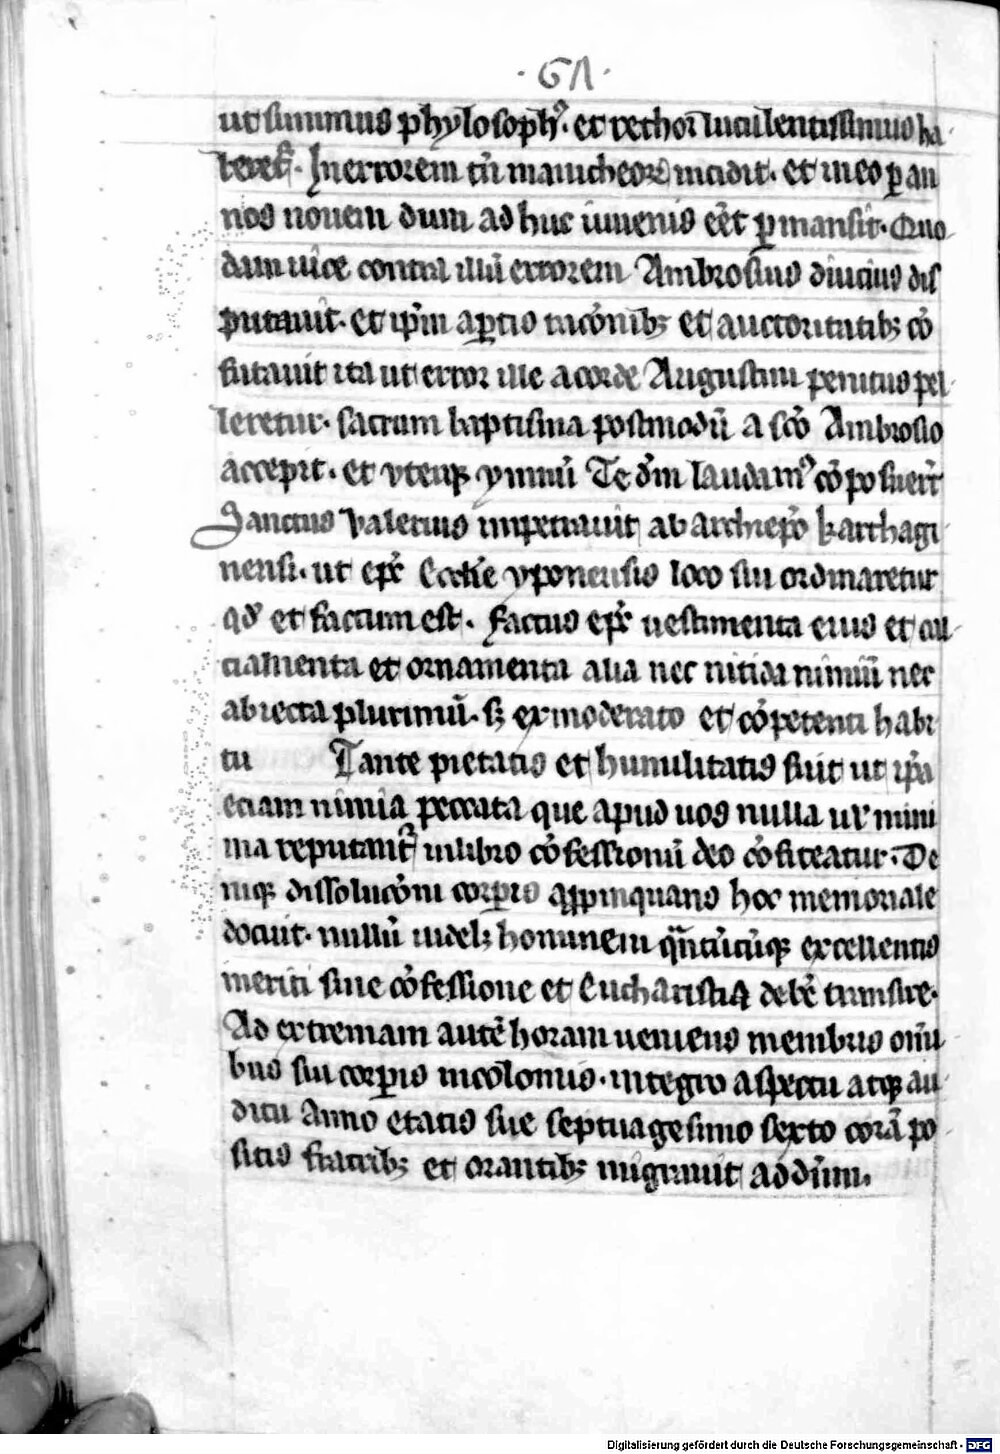 · 61 ·
ut summus phylosoph᷒. et rethor luculentissimus ha
beret᷑. In errorem tn̄ manicheoꝝ incidit. et in eo ꝑ an
nos nouem dum ad huc iuuenis eēt ꝑmansit. Quo
dam uice contra illū errorem Ambrosius diucius dis
putauit. et ip̄m aꝑtis rac̄onibꝫ et auctoritatibꝫ cō
futauit ita ut error ille a corde Augustini penitus pel
leretur. sacrum baptisma postmodū a sc̄o Ambrosio
accepit. et vterqꝫ ymnū Te dm̄ laudam᷒ cō posuer̄t
Sanctus Valerius impetrauit ab archiep̄o karthagi
nensi. ut ep̄c Ecclie yponensis loco sui ordinaretur
qd̓ et factum est. Factus ep̄c uestimenta eius et cal
ciamenta et ornamenta alia nec nitida nimiū nec
abiecta plurimū. sꝫ ex moderato et cō petenti habi
tu Tante pietatis et humilitatis fuit ut ip̄a
eciam nimia peccata que apud uos nulla ul̓ mini
ma reputant᷑ in libro cō fessionū deo cō fiteatur. De
niqꝫ dissoluc̄oni corꝑis aꝓpinquans hoc memoriale
docuit. nullū uidelꝫ hominem qn̄tūcūqꝫ excellentis
meriti sine cō fessione et Eucharistia debē transire.
Ad extremam autē horam ueniens membris omī
bus sui corꝑis incolomis. integro aspectu atqꝫ au
ditu Anno etatis sue septuagesimo sexto corā po
sitis fratribꝫ et orantibꝫ migrauit ad dn̄m.
Digitalisierung gefördert durch die Deutsche Forschungsgemeinschaft - DFG